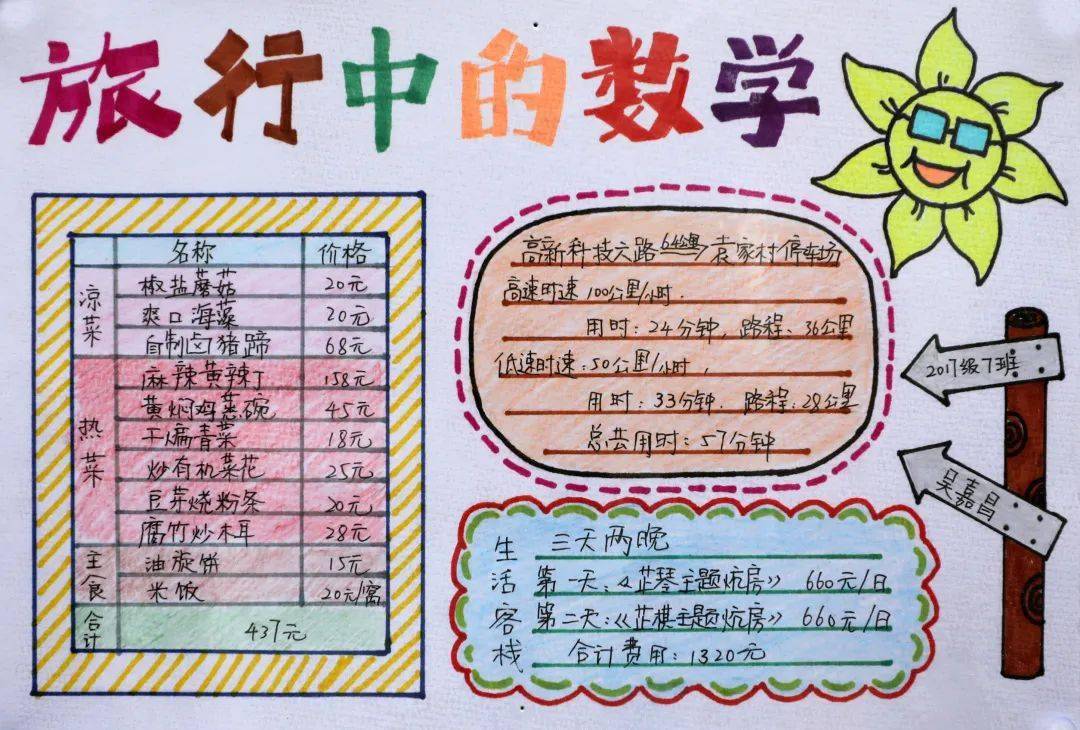 旅行中的数学
名称 价格
凉菜
椒盐蘑菇 20元
爽口海藻 20元
自制卤猪蹄 68元
热菜
麻辣黄辣丁 158元
黄焖鸡蒸碗 45元
干煸青菜 18元
炒有机菜花 25元
豆芽烧粉条 20元
腐竹炒木耳 28元
主食
油旋饼 15元
米饭 20元/窝
合计 437元
高新科技六路 64公里 袁家村停车场
高速时速100公里/小时.
用时:24分钟,路程、36公里
低速时速:50公里/小时,
用时:33分钟.路程:28公里
总共用时:57分钟
2017级7班
吴嘉昌
生活客栈
三天两晚
第一天:《芷琴主题炕房》 660元/日
第二天:《芷棋主题炕房》 660元/日
合计费用:1320元